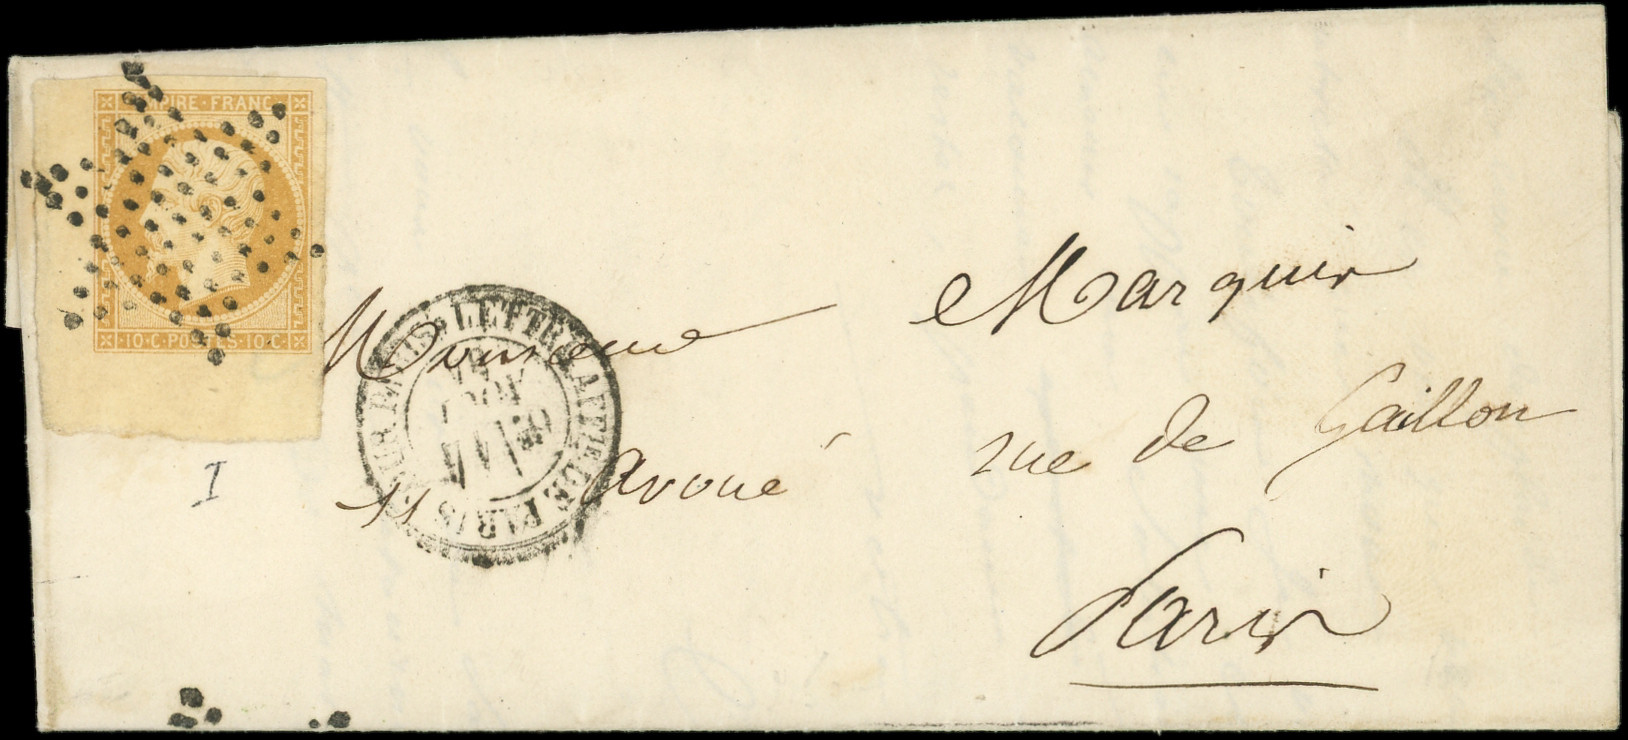 EMPIRE · FRANC
· 10 · C · POSTES · 10 · C ·
Monsieur Marquis
11 avoué rue de Gaillon
Paris
I
PARIS · LETTRE AFFIE DE PARIS
PARIS